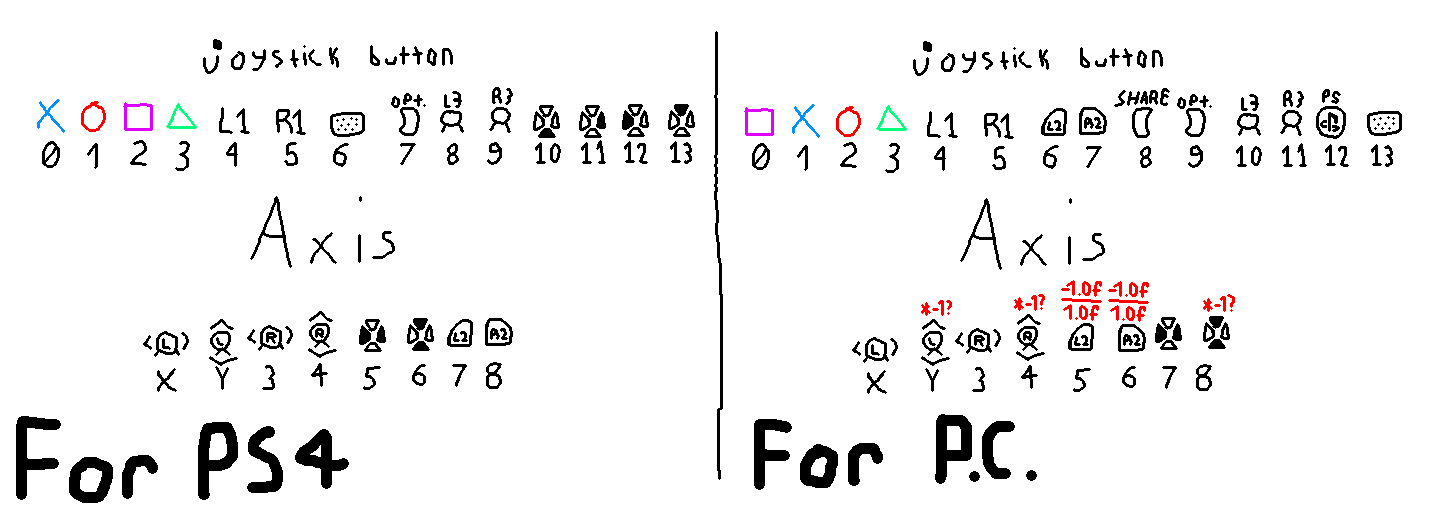 joystick button
L1 R1 OPt. L3 R3
0 1 2 3 4 5 6 7 8 9 10 11 12 13
Axis
L L R R L2 R2
X Y 3 4 5 6 7 8
For PS4
joystick button
L1 R1 L2 R2 SHARE OPt. L3 R3 PS
0 1 2 3 4 5 6 7 8 9 10 11 12 13
Axis
*-1? *-1? -1.0f -1.0f *-1?
1.0f 1.0f
L L R R L2 R2
X Y 3 4 5 6 7 8
For P.C.